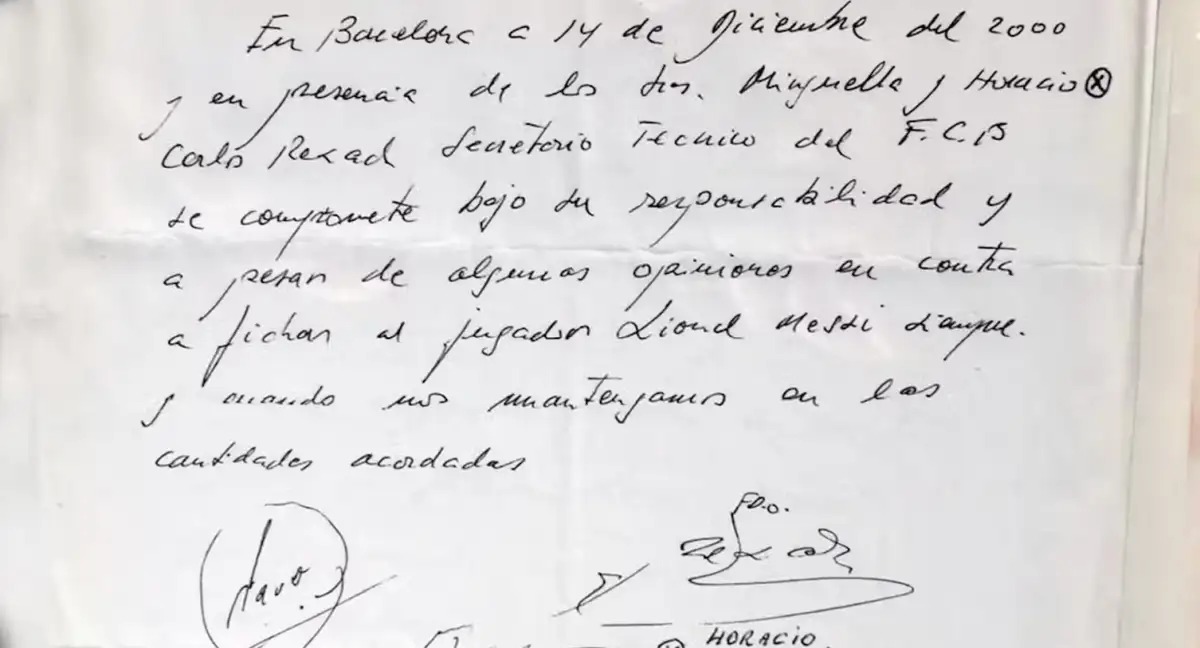 En Barcelona a 14 de Diciembre del 2000
y en presencia de los Sres. Minguella y Horacio ⓧ
Carlos Rexad Secretario Tecnico del F.C.B
se compromete bajo su responsabilidad y
a pesar de algunas opiniones en contra
a fichar al jugador Lionel Messi siempre.
y cuando nos mantengamos en las
cantidades acordadas
FDO.
Rexach
HORACIO